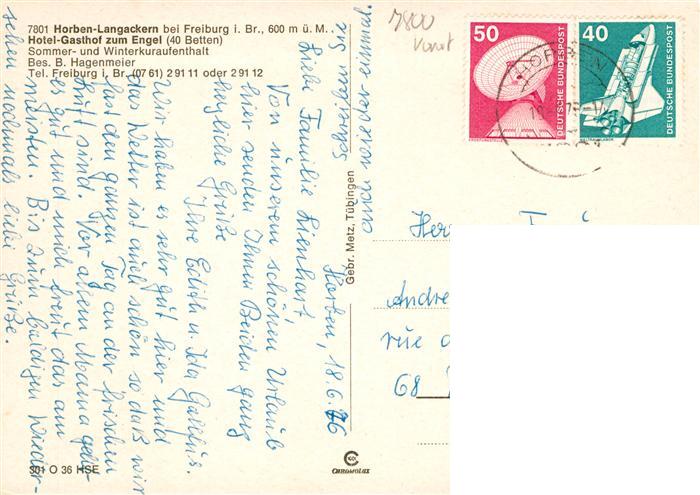 7801 Horben-Langackern bei Freiburg i. Br., 600 m ü. M.
Hotel-Gasthof zum Engel (40 Betten)
Sommer- und Winterkuraufenthalt
Bes. B. Hagenmeier
Tel. Freiburg i. Br. (07 61) 2 91 11 oder 2 91 12
Horben, 18.6.76
Liebe Familie Lienhart
Von unserem schönen Urlaub
hier senden Ihnen Beiden ganz
herzliche Grüße
Ihre Edith u. Ida
Wir haben es sehr gut hier und
das Wetter ist auch schön so daß wir
fast den ganzen Tag an der frischen
Luft sind. Vor allem Mama
es gut und mich freut das am
meisten. Bis zum baldigen Wieder-
sehen nochmals liebe Grüße.
Schreiben Sie
auch wieder einmal.
Gebr. Metz, Tübingen
301 O 36 HSE
CHROMOLUX
7800
50
DEUTSCHE BUNDESPOST
40
DEUTSCHE BUNDESPOST
HORBEN
Andre
rue d
68